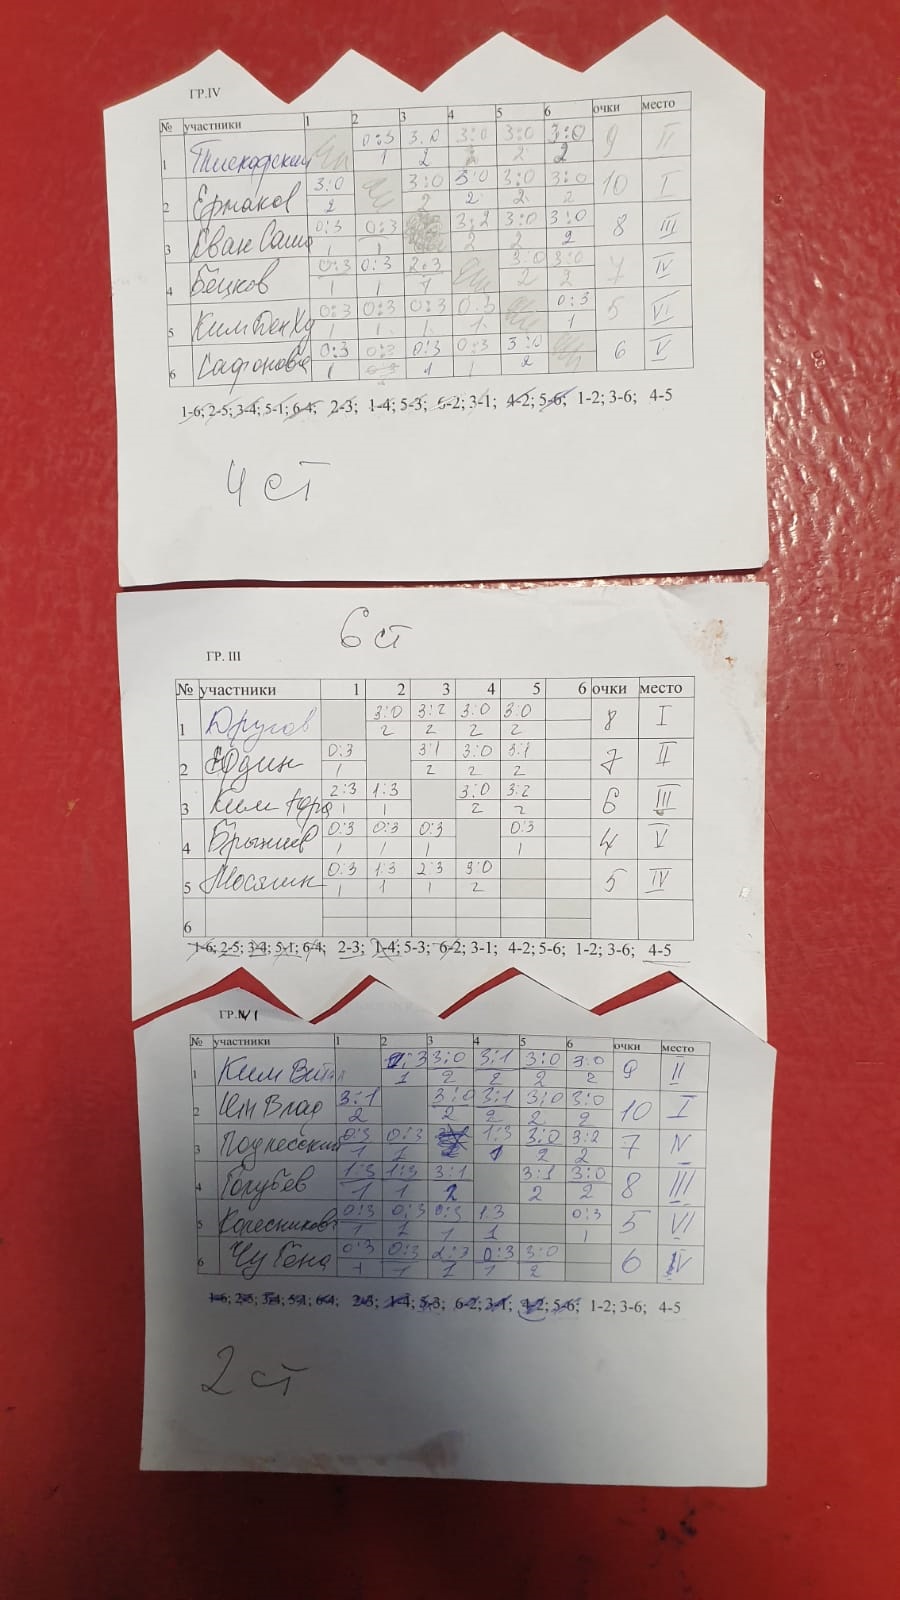 ГР.IV
№ участники 1 2 3 4 5 6 очки место
1 0:3 3:0 3:0 3:0 3:0 9 II
1 2 2 2 2
2 Ермаков 3:0 3:0 3:0 3:0 3:0 10 I
2 2 2 2 2
3 Хван Саша 0:3 0:3 3:2 3:0 3:0 8 III
1 1 2 2 2
4 Бецков 0:3 0:3 2:3 3:0 3:0 7 IV
1 1 1 2 2
5 Ким Бен Ху 0:3 0:3 0:3 0:3 0:3 5 VI
1 1 1 1 1
6 Сафонов 0:3 0:3 0:3 0:3 3:0 6 V
1 1 1 2
1-6; 2-5; 3-4; 5-1; 6-4; 2-3; 1-4; 5-3; 6-2; 3-1; 4-2; 5-6; 1-2; 3-6; 4-5
4 ст
6 ст
ГР. III
№ участники 1 2 3 4 5 6 очки место
1 Другов 3:0 3:2 3:0 3:0 8 I
2 2 2 2
2 Юдин 0:3 3:1 3:0 3:1 7 II
1 2 2 2
3 Ким 2:3 1:3 3:0 3:2 6 III
1 1 2 2
4 0:3 0:3 0:3 0:3 4 V
1 1 1 1
5 Мосякин 0:3 1:3 2:3 3:0 5 IV
1 1 1 2
6
1-6; 2-5; 3-4; 5-1; 6-4; 2-3; 1-4; 5-3; 6-2; 3-1; 4-2; 5-6; 1-2; 3-6; 4-5
ГР.VI
№ участники 1 2 3 4 5 6 очки место
1 Ким 1:3 3:0 3:1 3:0 3:0 9 II
1 2 2 2 2
2 Влад 3:1 3:0 3:1 3:0 3:0 10 I
2 2 2 2 2
3 Поднесский 0:3 0:3 1:3 3:0 3:2 7 IV
1 1 1 2 2
4 Голубев 1:3 1:3 3:1 3:1 3:0 8 III
1 1 2 2 2
5 Колесников 0:3 0:3 0:3 1:3 0:3 5 VI
1 1 1 1 1
6 Чу Гена 0:3 0:3 2:3 0:3 3:0 6
1 1 1 1 2
1-6; 2-5; 3-4; 5-1; 6-4; 2-3; 1-4; 5-3; 6-2; 3-1; 4-2; 5-6; 1-2; 3-6; 4-5
2 ст